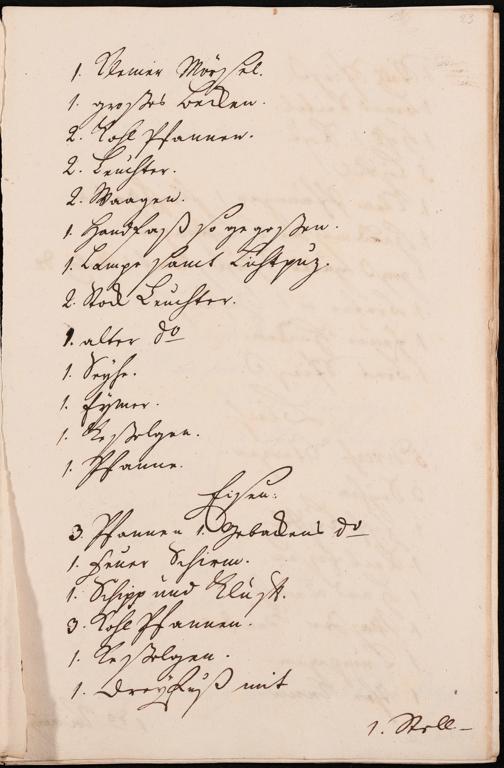 1. kleiner Mörsel.
1. großes Becken.
2. Kohl Pfannen.
2. Leuchter.
2. Waagen.
1. Handfaß so gegoßen.
1. Lampe samt Lichtpuz.
2. Stock Leuchter.
1. alter do
1. Seyhe.
1. Eymer.
1. Keßelgen.
1. Pfanne.
Eisen:
3. Pfannen 1. Gebackens do
1. Feuer Schirm.
1. Schipp und Kluft.
3. Kohl Pfannen.
1. Keßelgen.
1. Dreyfuß mit
1. Stell-